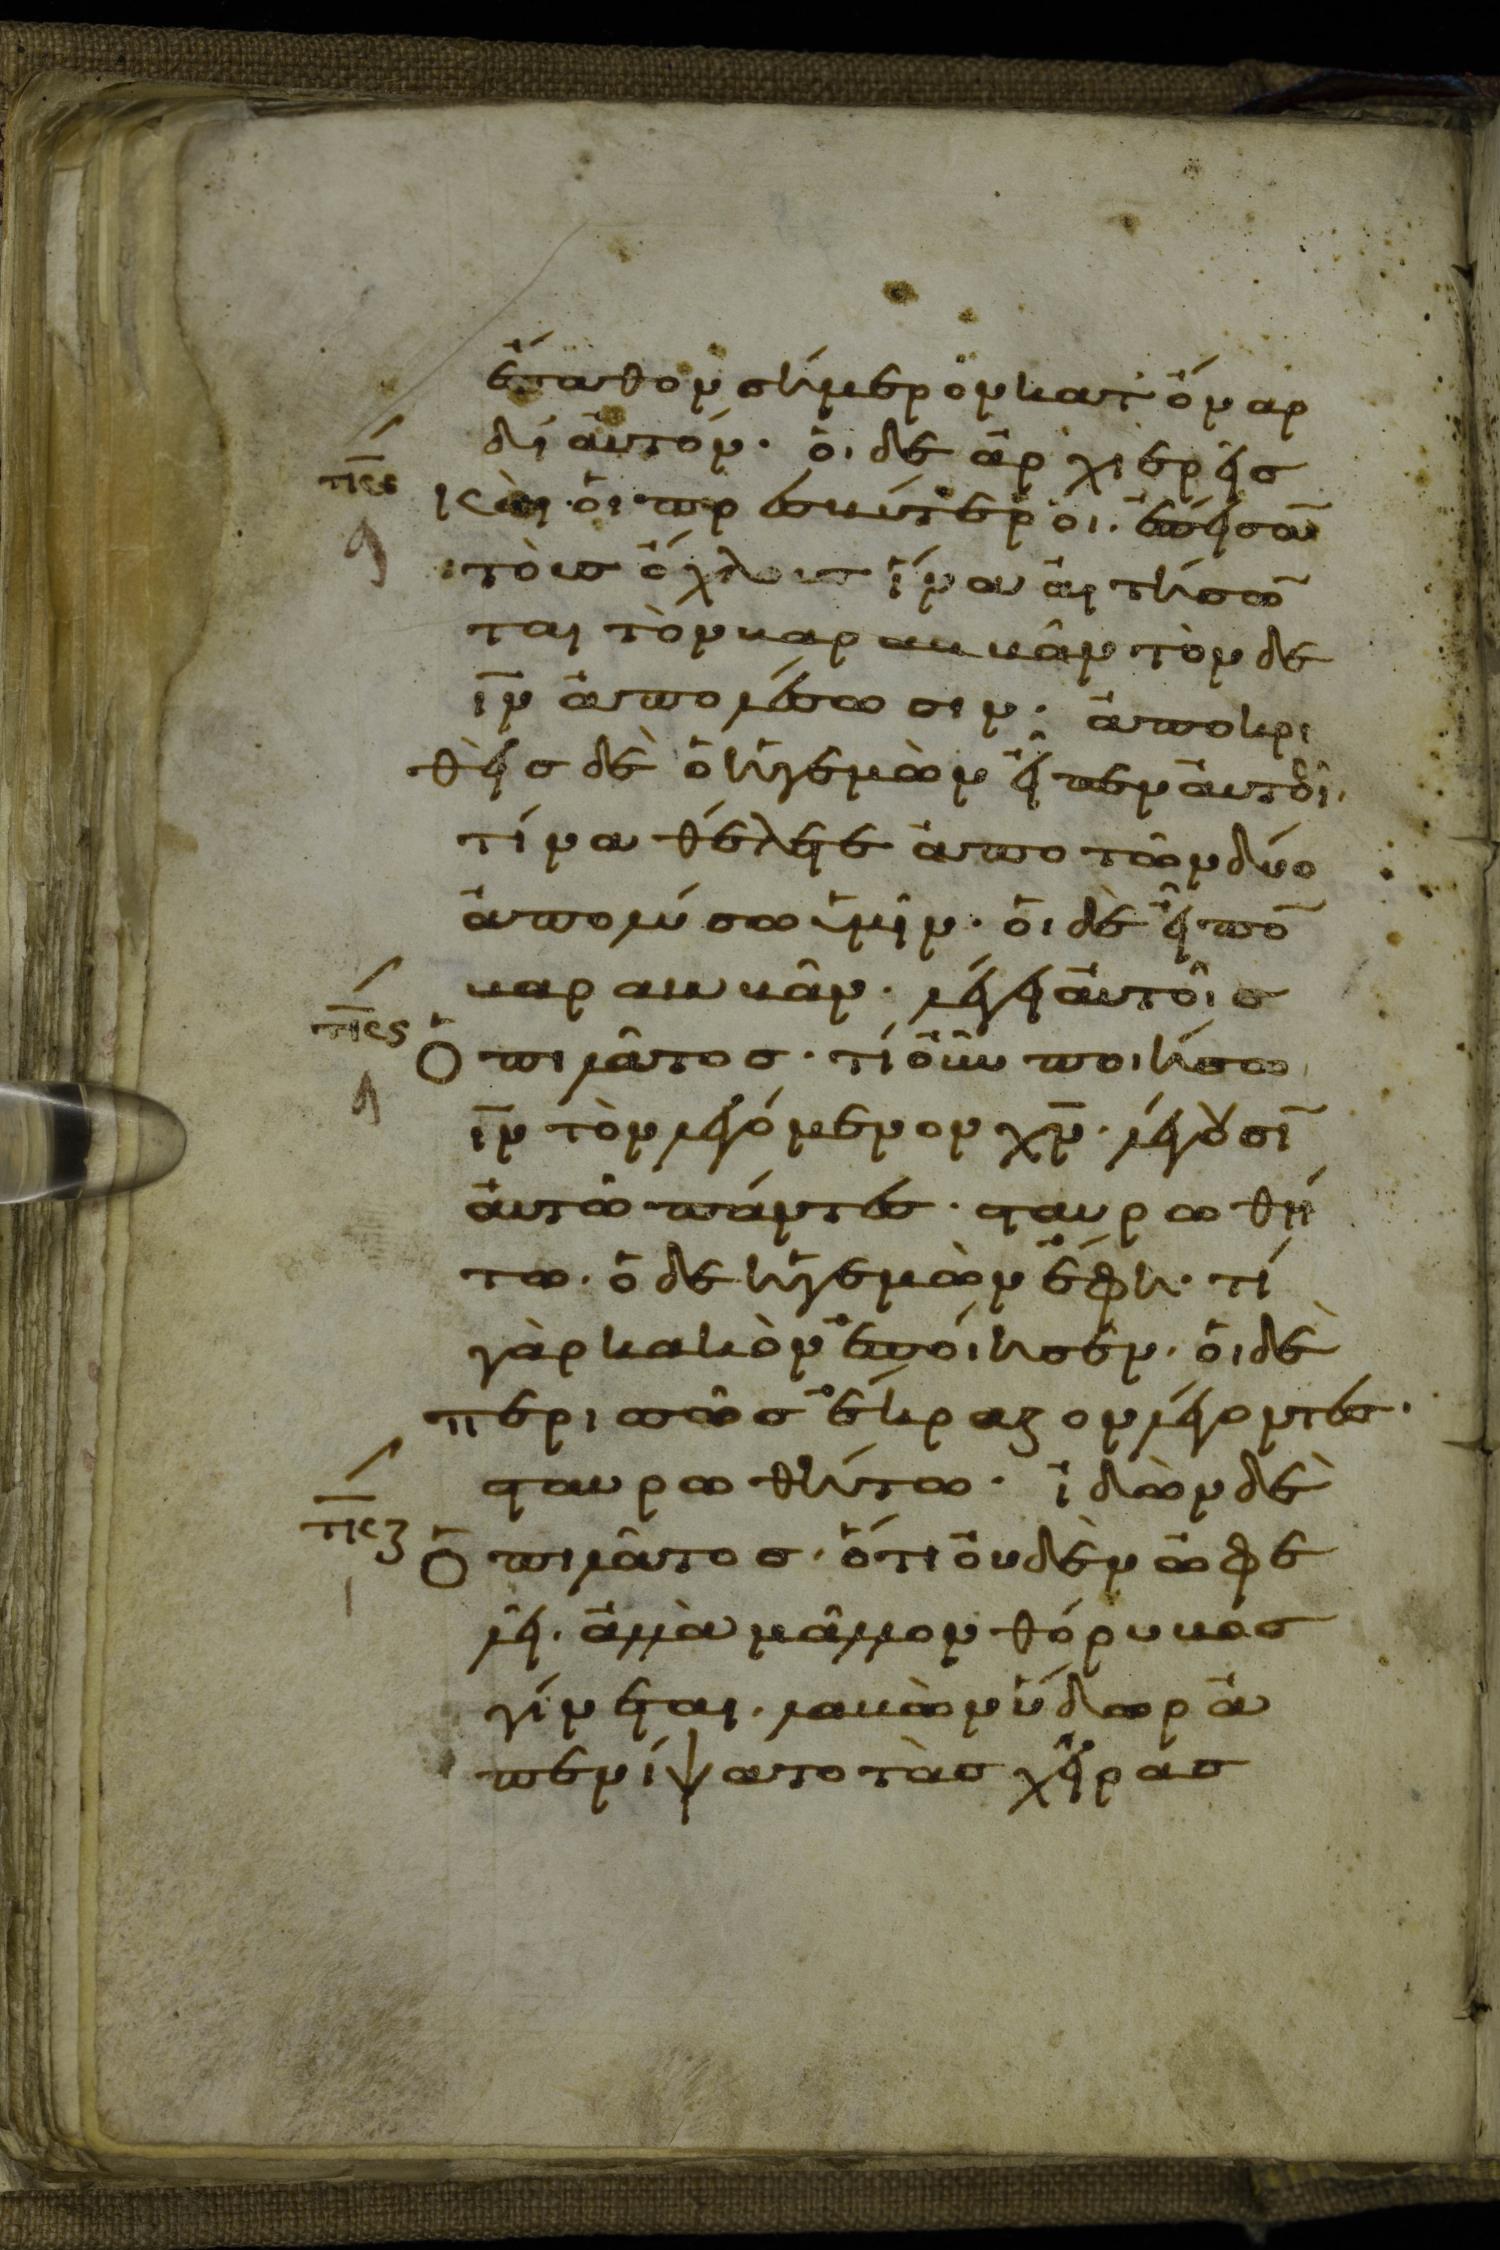 ἔπαθον σήμερον κατ' ὄναρ
δι αὐτόν. ὁι δε ἀρχιερεῖσ
τκε
καὶ ὁι πρεσβύτεροι. ἔπεισα̅
α
τοὺσ ὄχλουσ ἵνα ἀιτήσω̅
ται τὸν βαραββᾶν τὸν δε
ι̅ν ἀπολέσωσιν. ἀποκρι
θεὶσ δὲ ὁ ἡγεμὼν εἶπεν αὐτοῖ.
τίνα θέλεις ἀπο τῶν δύο
ἀπολύσω ὑμῖν. ὁι δὲ εἶπο̅
βαραββᾶν. λέγει αὐτοῖσ
τκϛ
ὁ πιλᾶτοσ. τί οὖν ποιήσω
α
ι̅ν τὸν λεγόμενον χ̅ν. λέγουσι̅
αὐτῶ πάντεσ. σταυρωθή
τω. ὁ δε ἡγεμὼν ἔφη. τί
γὰρ κακὸν ἐποίησεν. ὁι δὲ
περισσῶσ ἔκραζον λέγοντεσ.
σταυρωθήτω. ἰδὼν δὲ
τκζ
ὁ πιλᾶτοσ. ὅτι οὐδὲν ὠφε
ι
λεῖ. ἀλλὰ μᾶλλον θόρυβοσ
γίνεται. λαβὼν ὕδωρ ἀ
πενίψατο τὰσ χεῖρασ